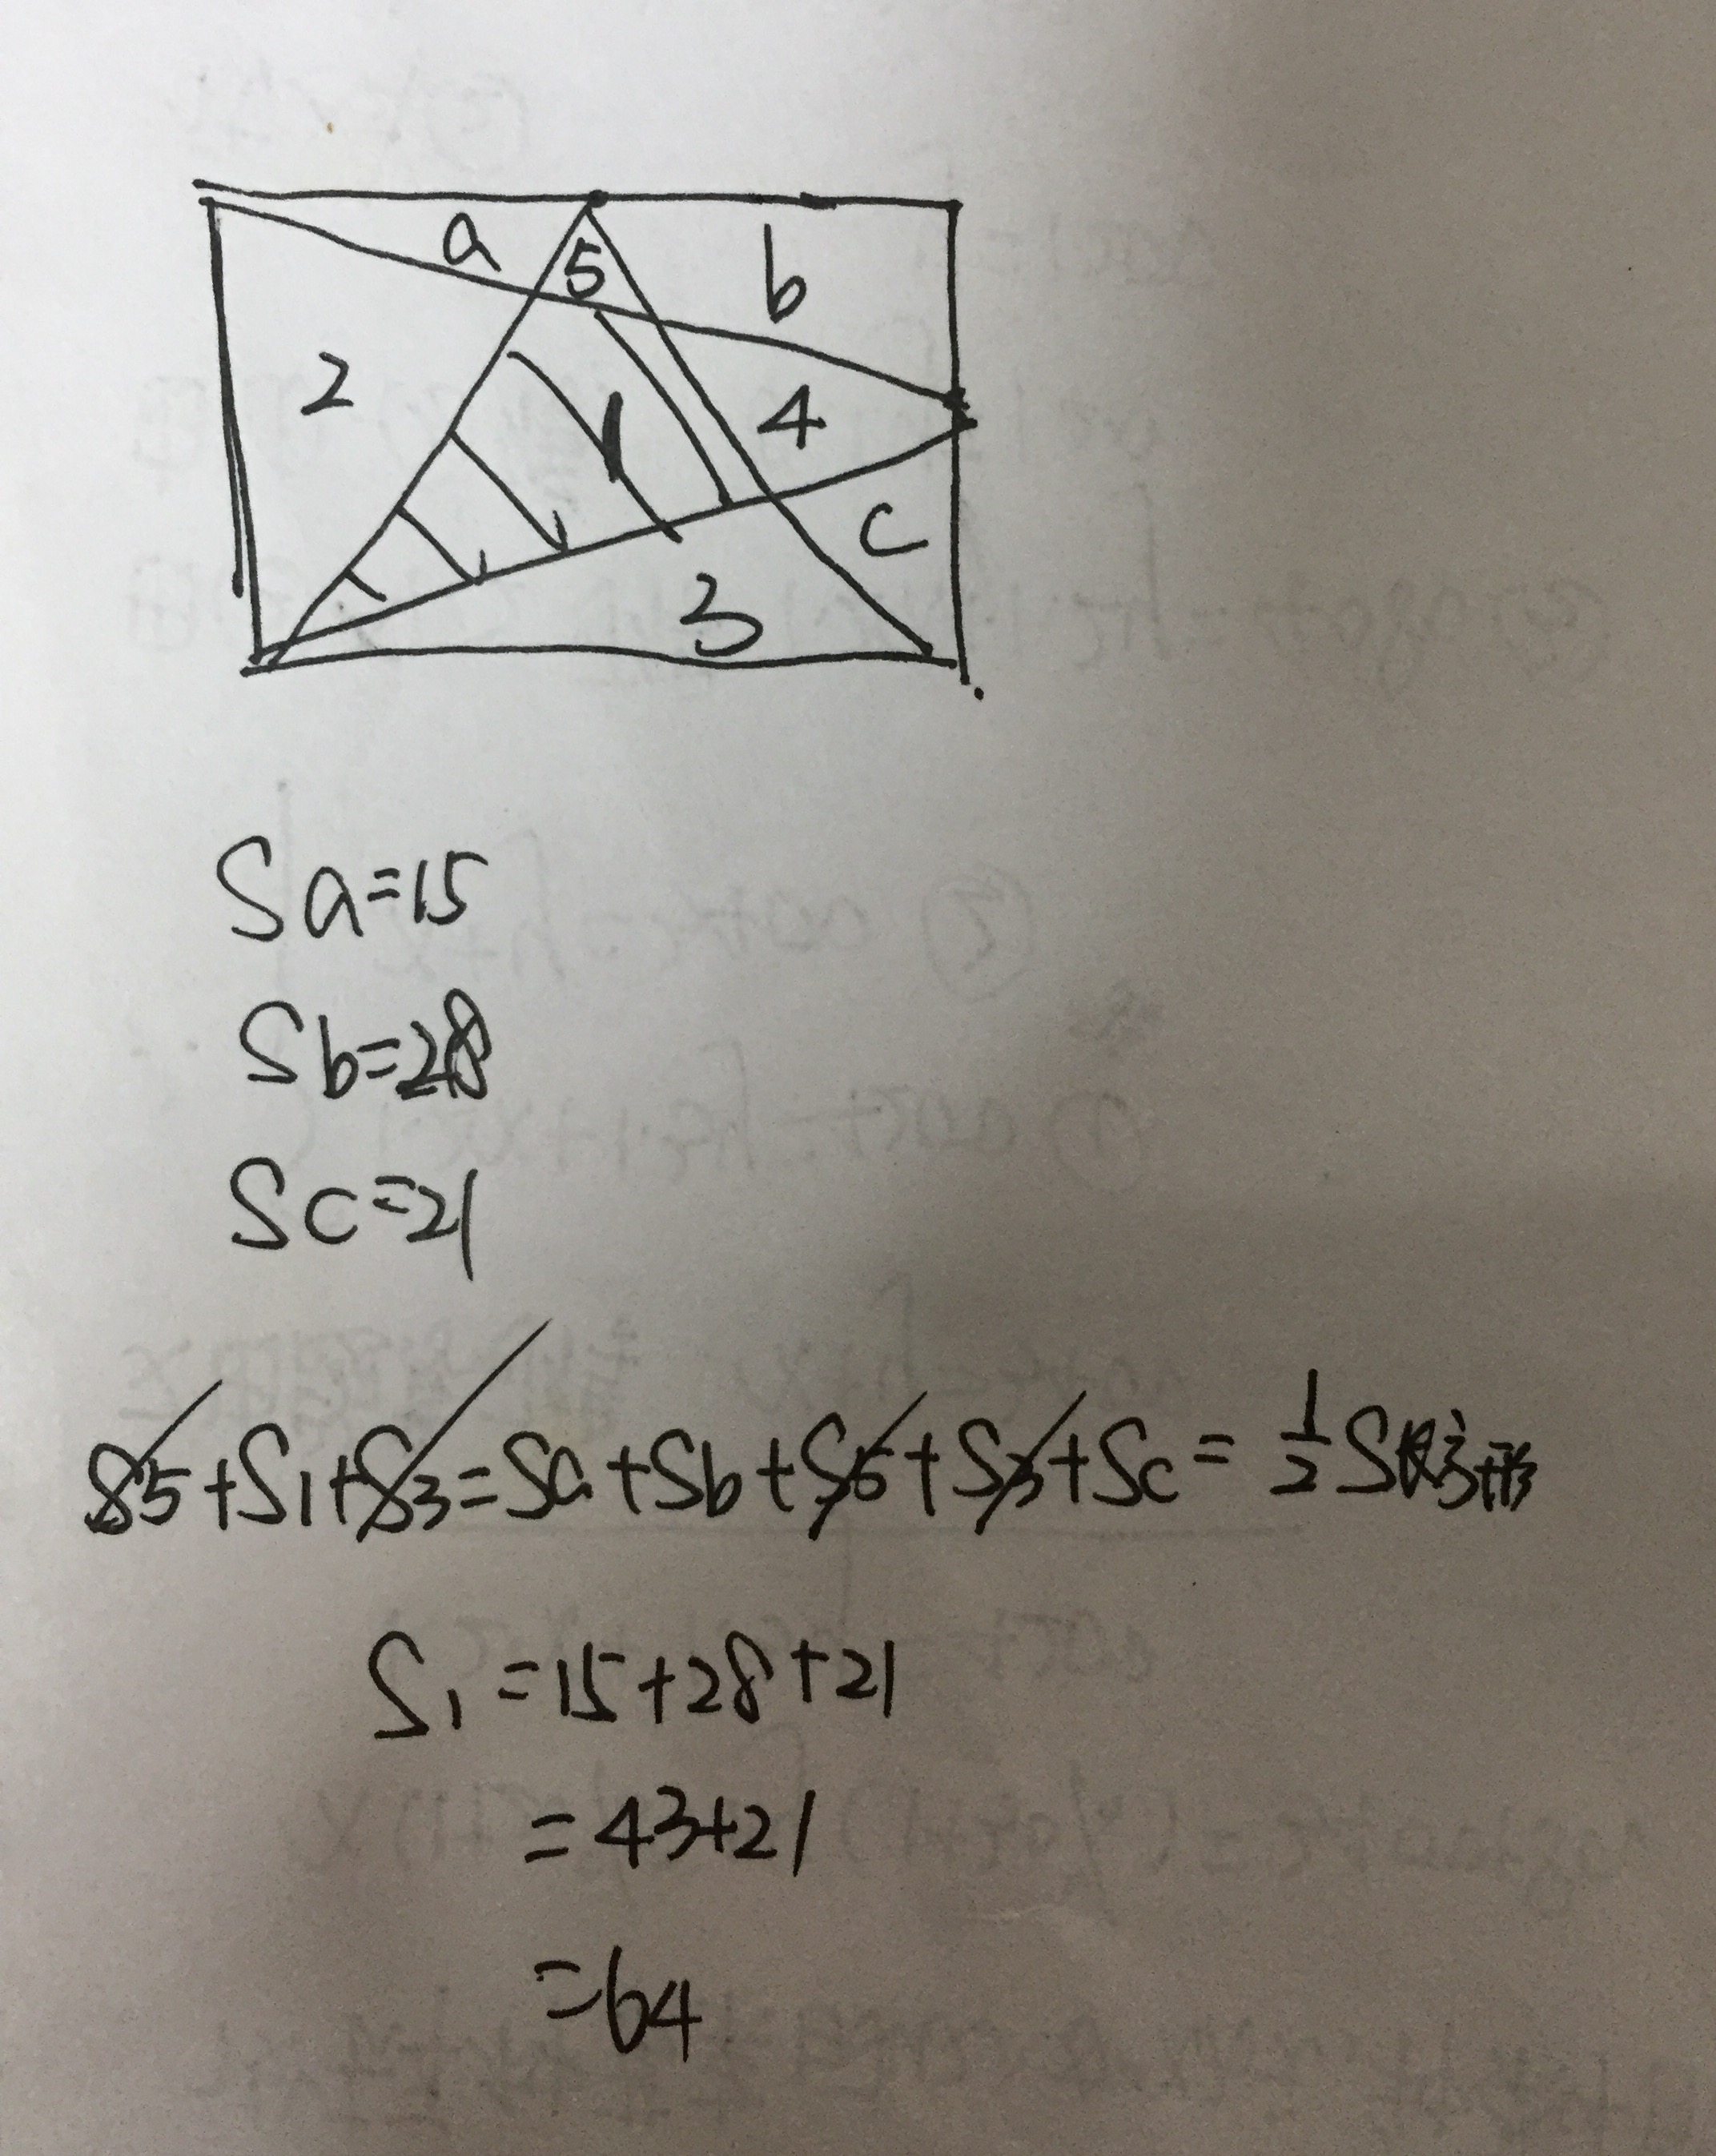 a
5
b
2
1
4
c
3
Sa=15
Sb=28
Sc=21
S5+S1+S3=Sa+Sb+S5+S3+Sc=1/2S
S1=15+28+21
=43+21
=64